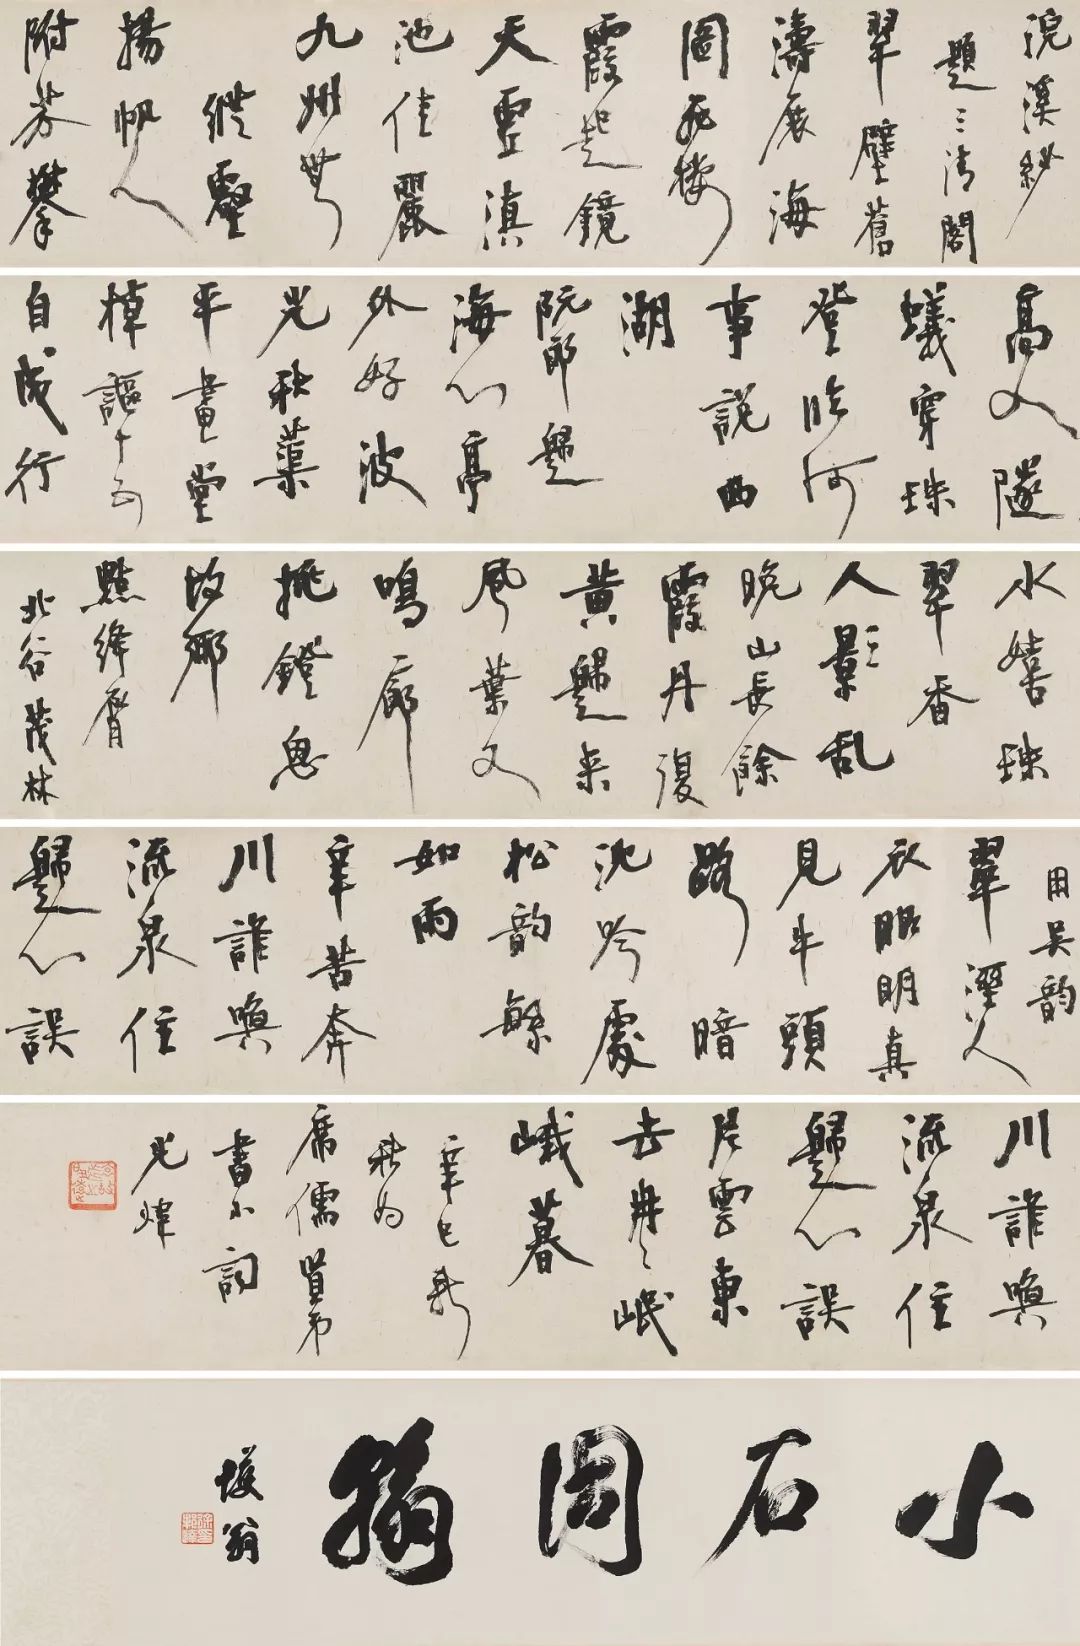 浣溪紗
題三清閣
翠壁蒼
濤展海
圖飛樓
霞起鏡
天虛滇
池佳麗
九州無
縱壑
揚帆人
附芥攀
高人隧
蟻穿珠
登臨何
事說西
湖
阮郎歸
海心亭
外好波
光秋蕖
平畫堂
棹謳十五
自成行
水嬉珠
翠香
人影亂
晚山長餘
霞丹復
黃歸來
風葉又
鳴廊
挑鐙思
故鄉
點絳脣
北谷茂林
用吳韵
翠溼人
衣眼明真
見牛頭
路暗
沈吟處
松韵緐
如雨
辛苦奔
川誰喚
流泉住
歸心誤
川誰喚
流泉住
歸心誤
片雲東
去冉冉岷
峨暮
辛巳新
秋為
席儒賢弟
書小詞
光煒
小石
翁